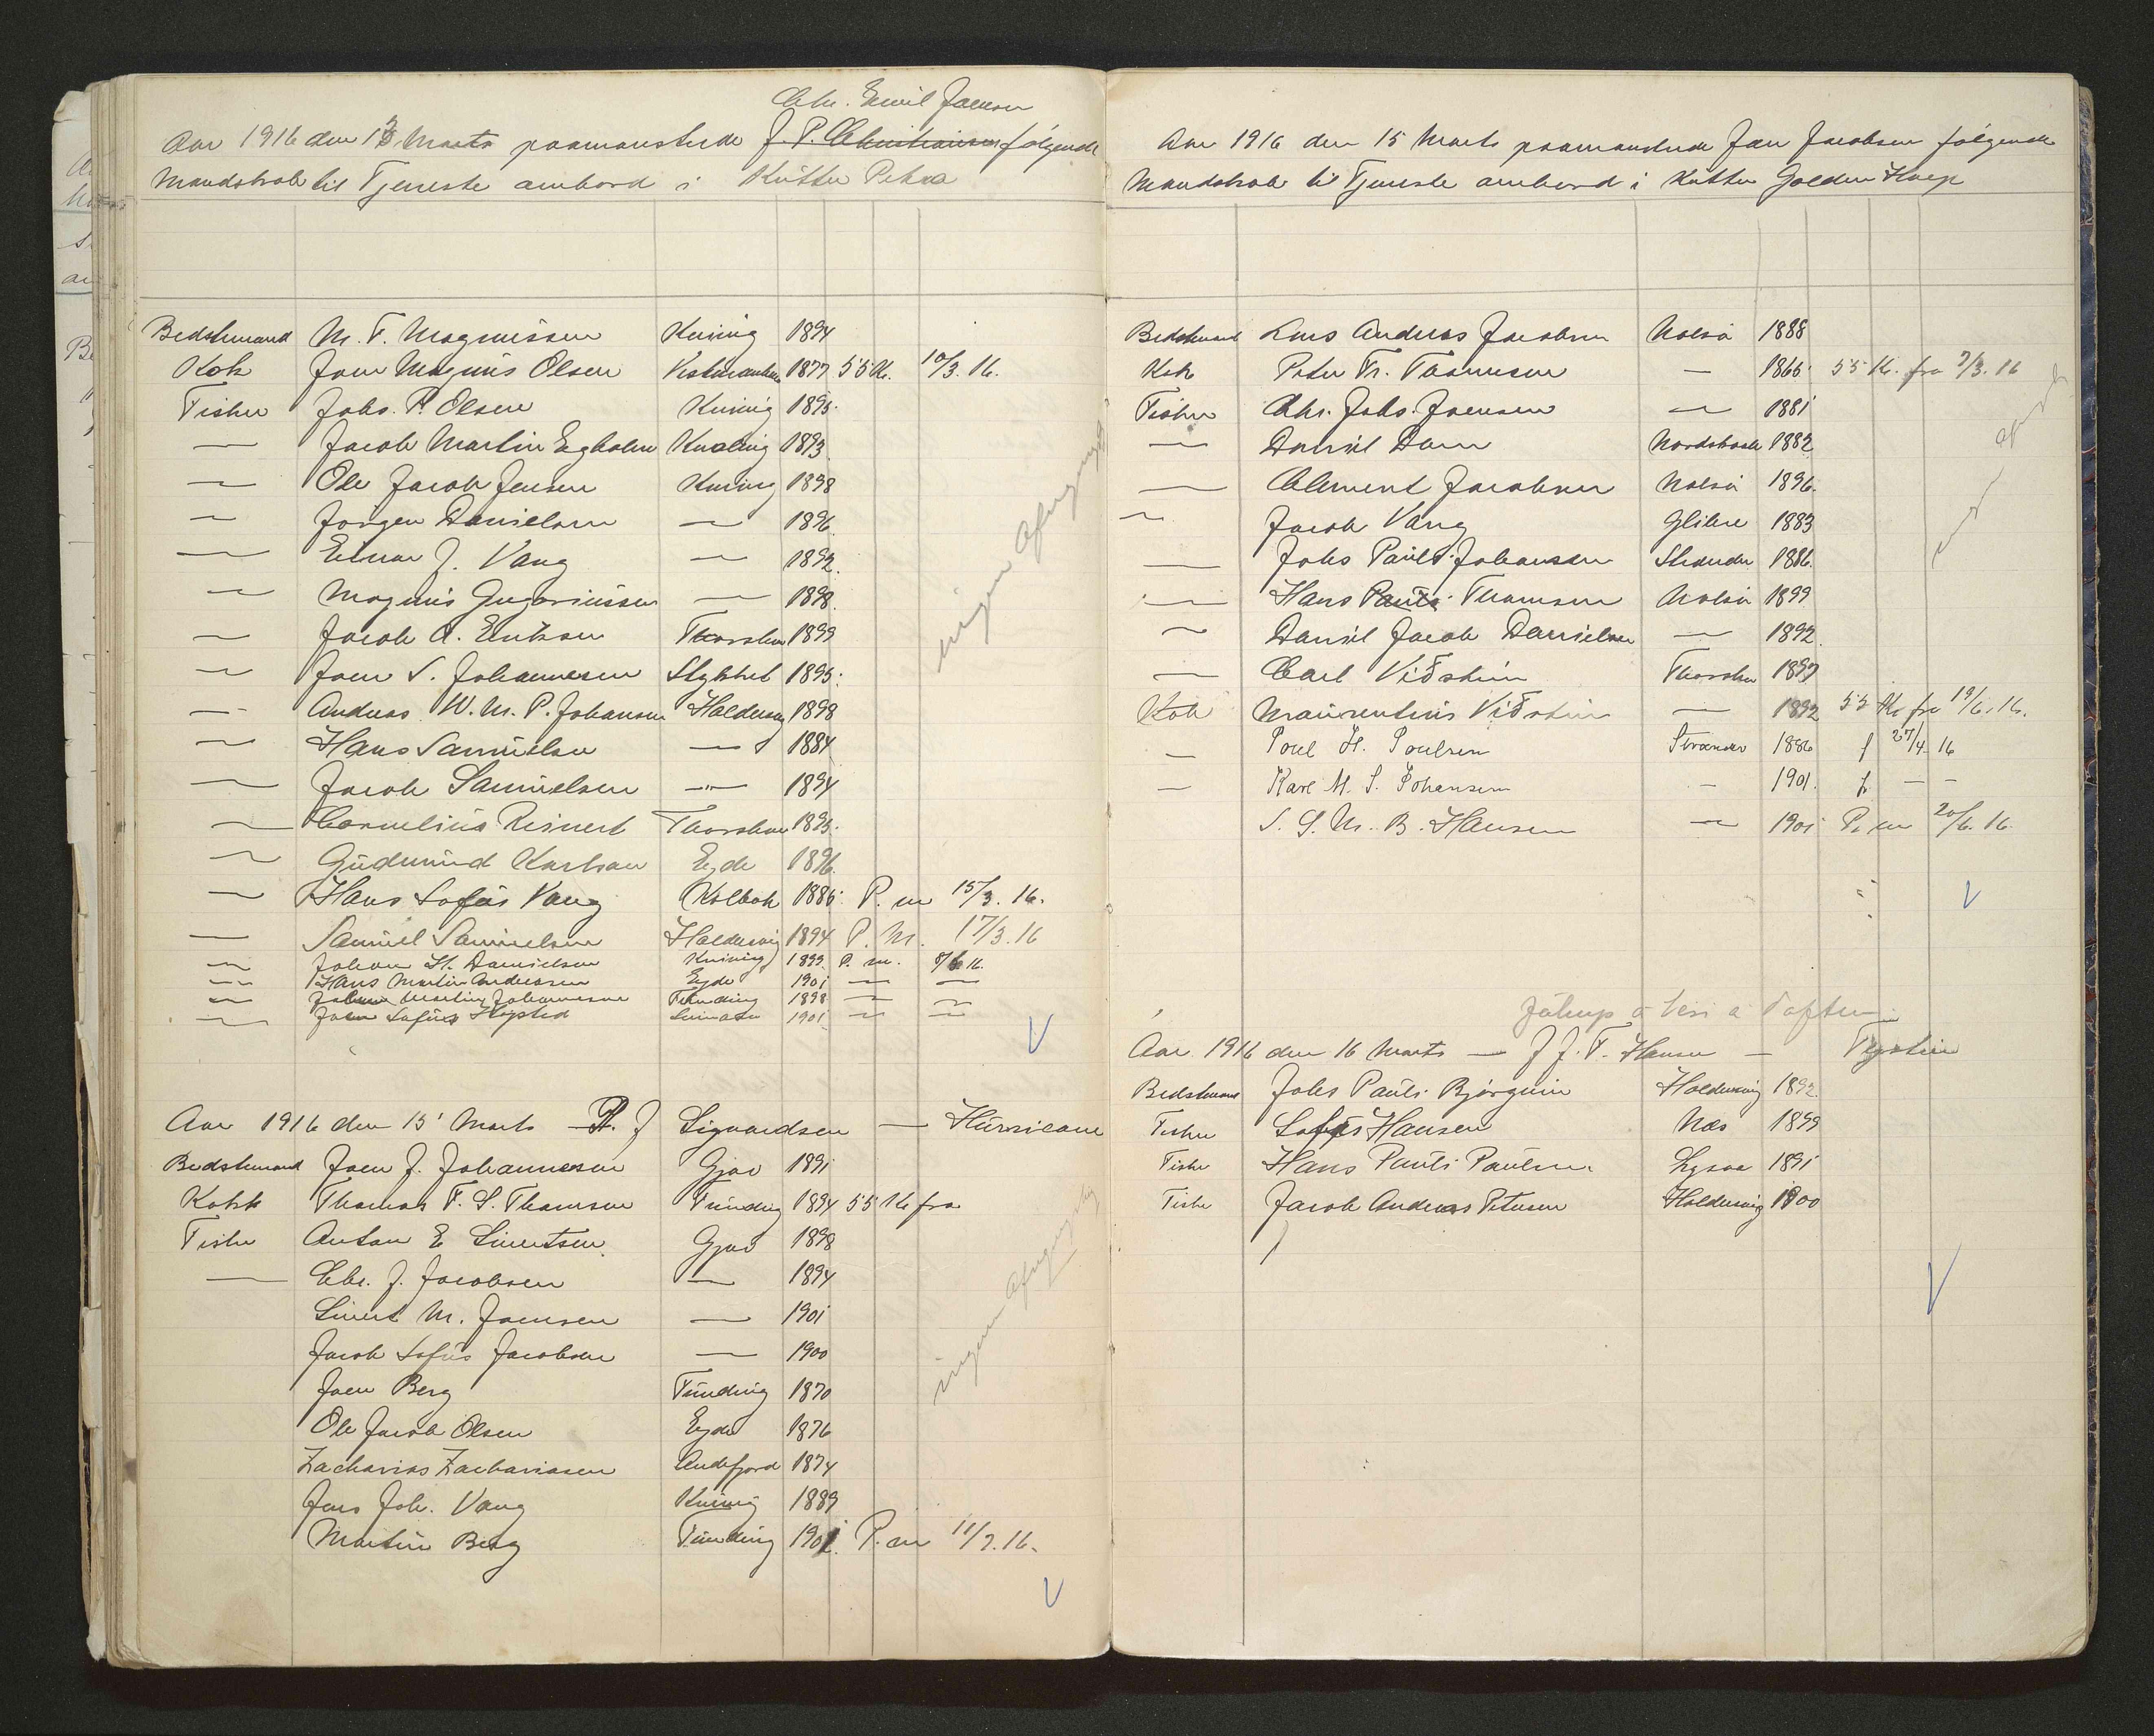 Chr. Emil Joensen
Aar 1916 den 13 Marts paamønstrede J. P. Christiansen følgende
Mandskab til Tjeneste ombord i Kutter Petra
Bedstemand M. F. Magnussen Kvivig 1894
Kok Joen Magnus Olsen Vestmanhavn 1877 55 Kr. 10/3. 16.
Fisker Johs. P. Olsen Kvivig 1895.
— Jacob Martin Egholm Kvalvig 1893.
— Ole Jacob Jensen Kvivig 1898
— Jørgen Danielsen — 1896
— Einar J. Vang — 1892.
— Magnus Gregoriussen — 1898.
— Jacob A. Eriksen Thorshavn 1899
— Joen S. Johannesen Stykket 1895.
— Andreas W. M. P. Johansen Haldersvig 1898
— Hans Samuelsen — 1884
— Jacob Samuelsen — 1894
— Cornelius Reinert Thorshavn 1895.
— Gudmund Karlsen Eyde 1896.
— Hans Sofus Vang Kolbak 1886. P. m 15/3. 16.
— Samuel Samuelsen Haldersvig 1894 P. M. 17/3. 16
— Johan H. Danielsen Kvivig 1899. P. m. 8/6 16.
— Hans Martin Andreasen Eyde 1901 — —
— Martin Johannesen Funding 1898 — —
— Joen Sofus 1901 — —
ingen afregning
Aar 1916 den 15 Marts — P. J Sigvardsen — Hurricane
Bedstemand Joen J. Johannesen Gjov 1891
Kokk Thomas F. S. Thomsen Funding 1894 55 Kr fra
Fisker Anton E Sivertsen Gjov 1898
— Chr. J. Jacobsen — 1894
Sivert M. Joensen — 1901
Jacob Sofus Jacobsen — 1900
Joen Berg Funding 1870
Ole Jacob Olsen Eyde 1876
Zacharias Zachariasen Andefjord 1874
Jens Joh. Vang Kvivig 1889
Martin Berg Funding 1901. P. m 11/7. 16.
ingen afregning
Aar 1916 den 15 Marts paamønstrede Joen Jacobsen følgende
Mandskab til Tjeneste ombord i Kutter Golden Harp
Bedstemand Lars Andreas Jacobsen Nolsø 1888
Kok Peter Fr. Thomsen — 1866. 55 Kr. fra 7/3. 16
Fisker Chr. Johs. Joensen — 1881
— Daniel Dam Nordskaale 1882
— Clement Jacobsen Nolsø 1896.
— Jacob Vang Glibre 1883
— Johs Pauli Johansen Strender 1886.
— Hans Pauli Thomsen Nolsø 1899
— Daniel Jacob Danielsen — 1892.
— Carl Viðstein Thorshavn 1897
Kok Maurentius Viðstein — 1892 55 Kr fra 19/6. 16.
— Poul H. Poulsen Strænder 1886 f 27/4 16
— Karl M. S. Johansen — 1901. f — —
S. S. M. B. Hansen — 1901 P. m 20/6. 16.
Aar 1916 den 16 Marts — J. J. F. Hansen —
Bedstemand Johs Pauli Bjørgvin Haldersvig 1892.
Fisker Sofus Hansen Næs 1899
Fisker Hans Pauli Paulsen 1891
Fisker Jacob Andreas Petersen Haldersvig 1900